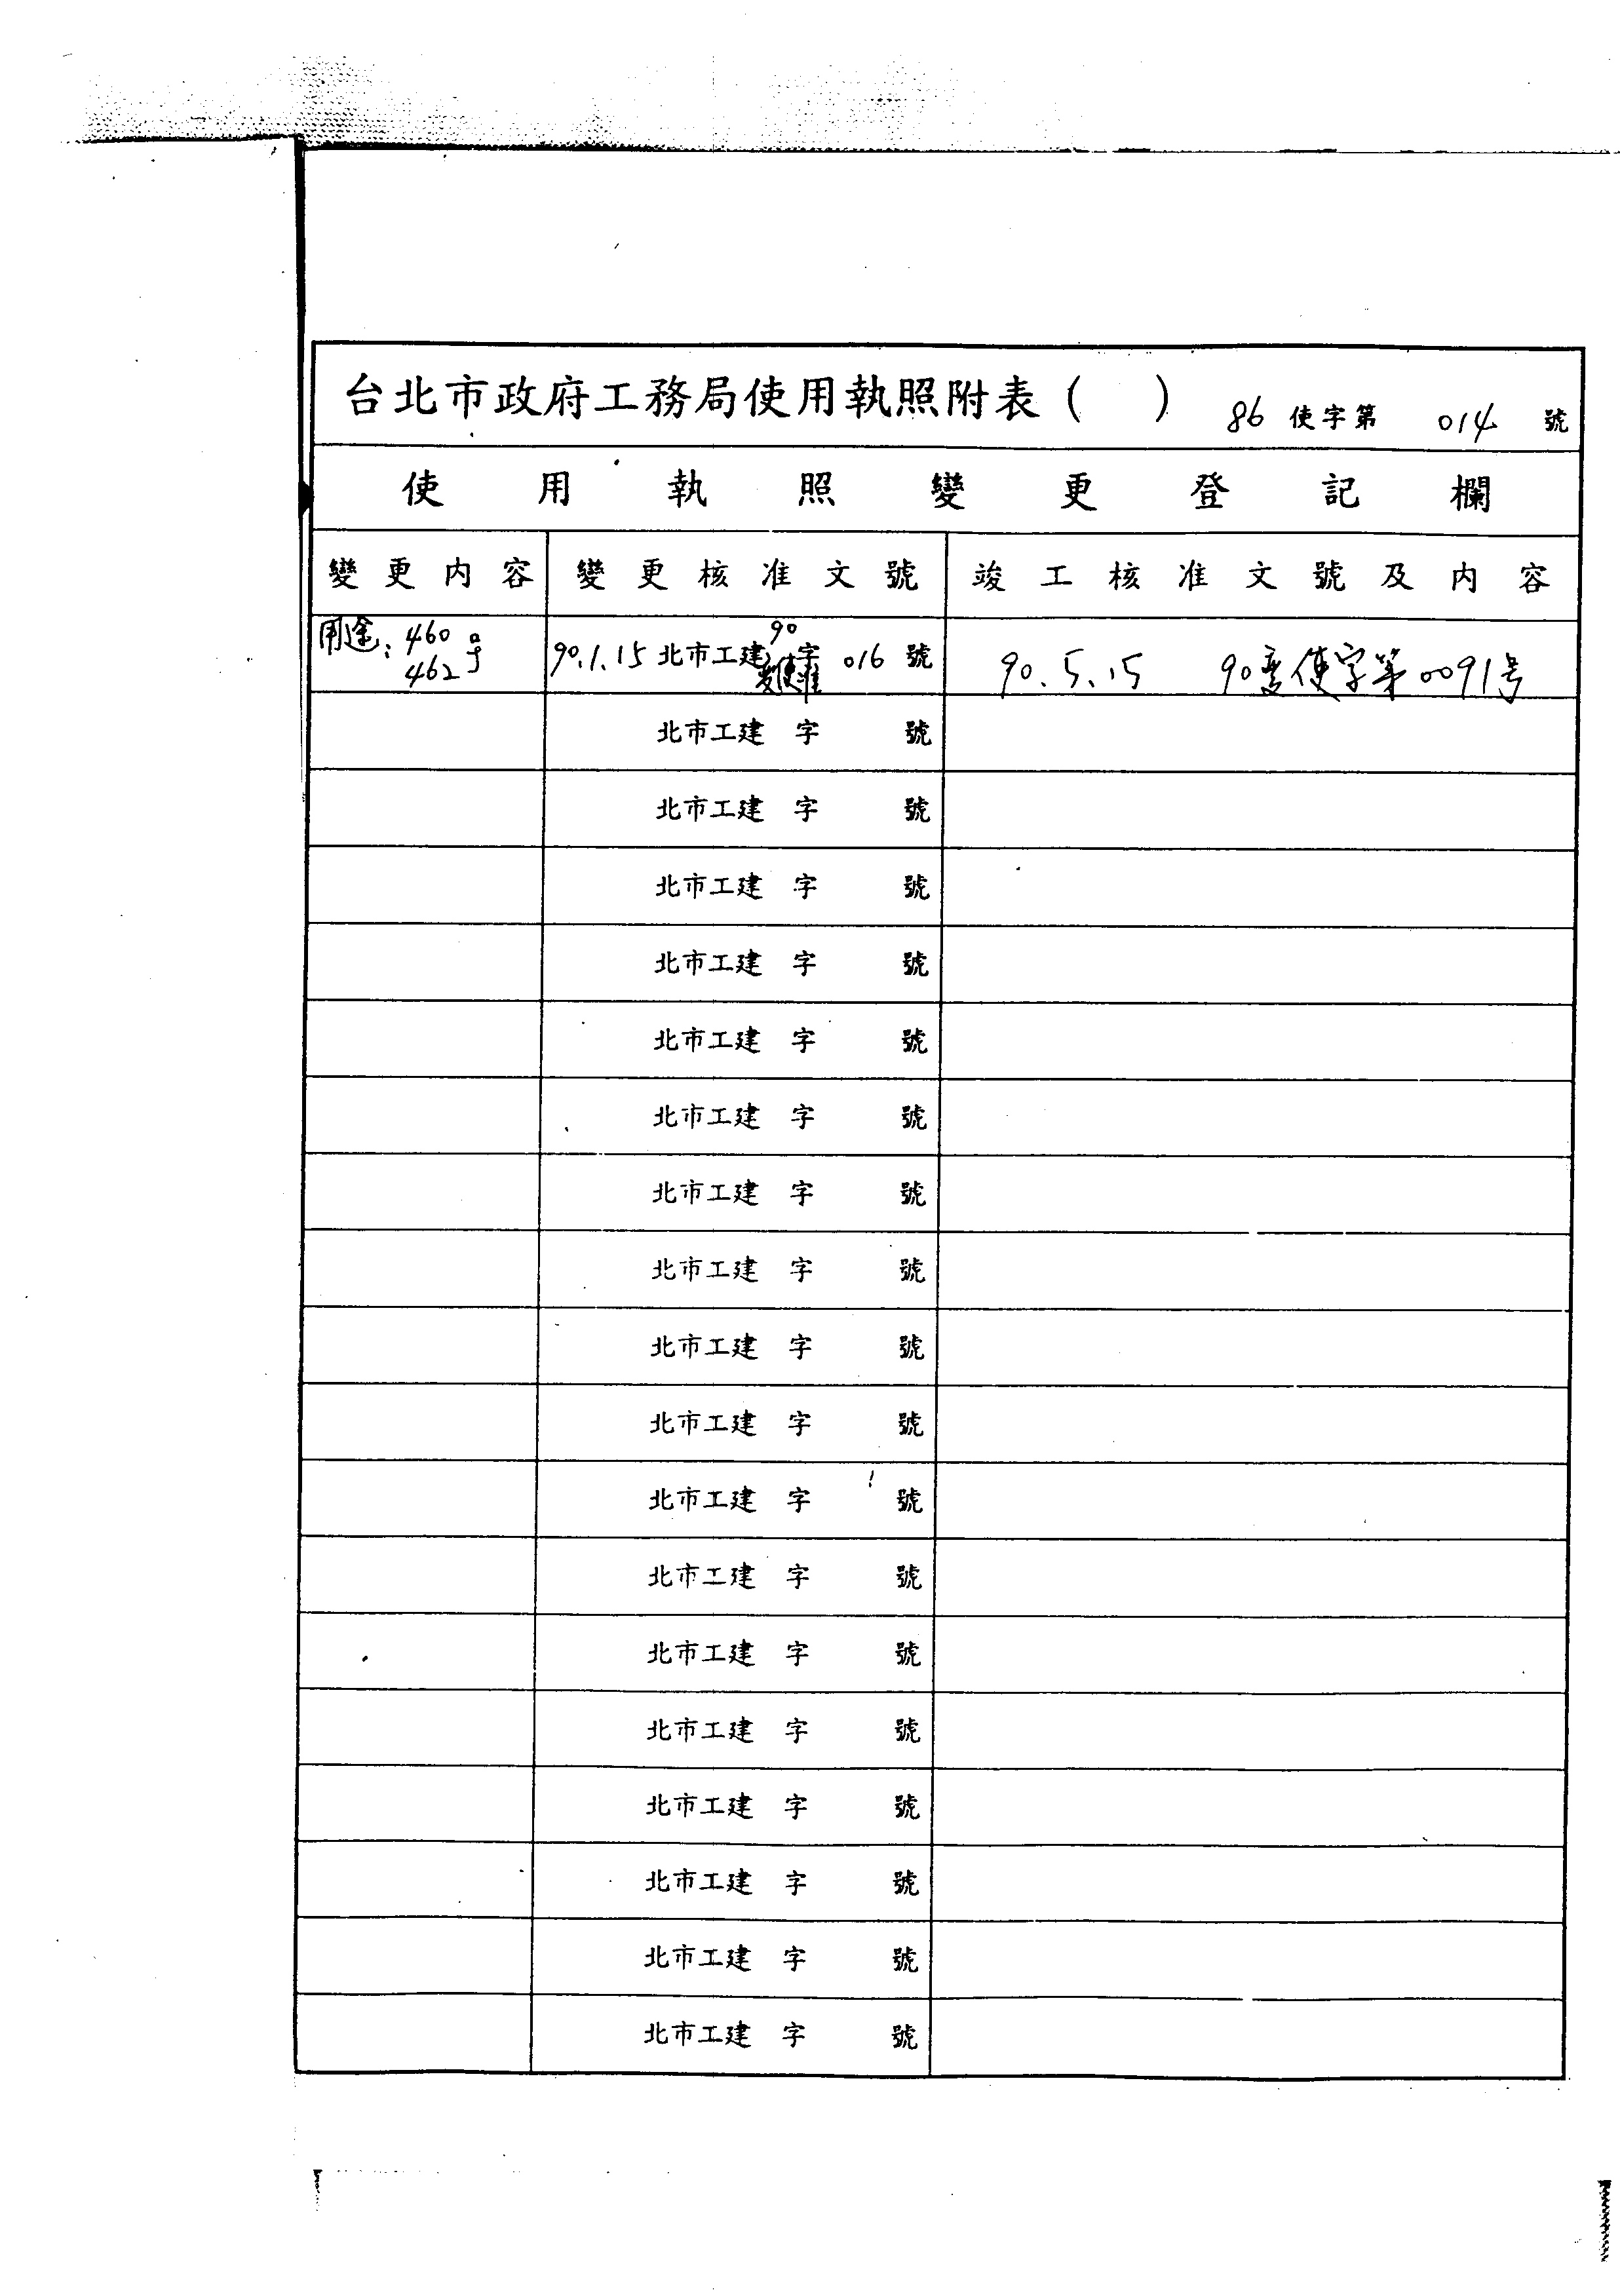 台北市政府工務局使用執照附表（　） 86 使字第 014 號
使用執照變更登記欄
變更內容 變更核准文號 竣工核准文號及內容
用途：460号 462 90.1.15 北市工建 90 変使准 字 016 號 90.5.15 90変使字第0091号
北市工建 字 號
北市工建 字 號
北市工建 字 號
北市工建 字 號
北市工建 字 號
北市工建 字 號
北市工建 字 號
北市工建 字 號
北市工建 字 號
北市工建 字 號
北市工建 字 號
北市工建 字 號
北市工建 字 號
北市工建 字 號
北市工建 字 號
北市工建 字 號
北市工建 字 號
北市工建 字 號